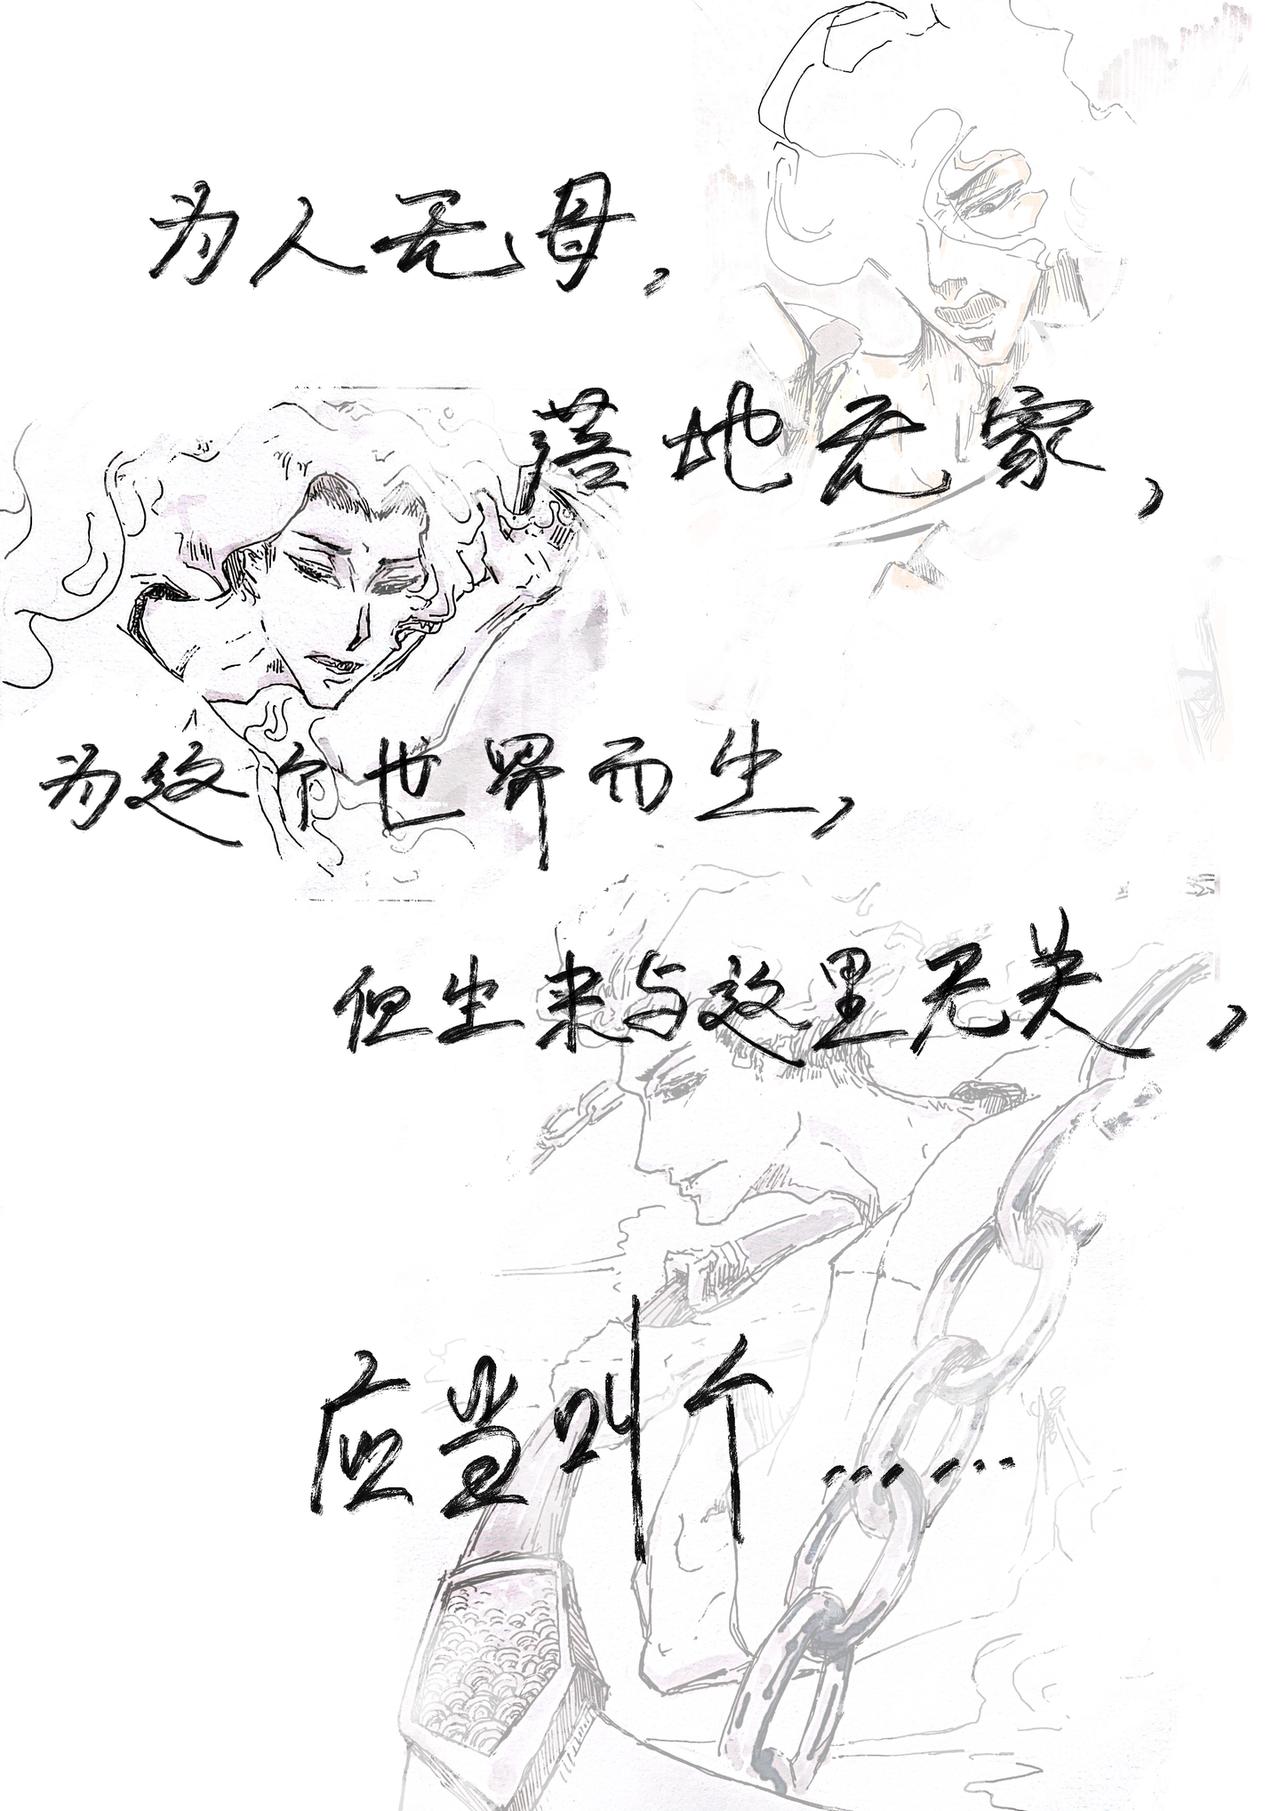 为人无母，
落地无家，
为这个世界而生，
但生来与这里无关，
应当叫个……